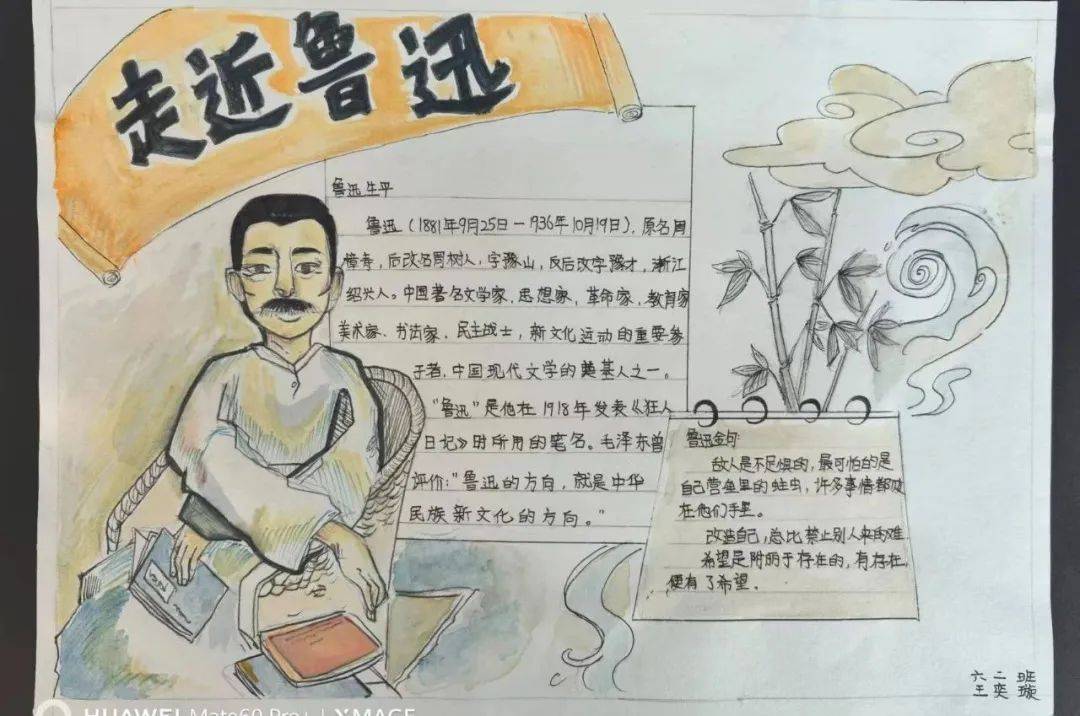 走近鲁迅
鲁迅生平
鲁迅(1881年9月25日-1936年10月19日),原名周
樟寿,后改名周树人,字豫山,反后改字豫才,浙江
绍兴人。中国著名文学家、思想家,革命家、教育家
美术家、书法家、民主战士,新文化运动的重要参
于者,中国现代文学的奠基人之一。
“鲁迅”是他在1918年发表《狂人
日记》时所用的笔名。毛泽东曾
评价:“鲁迅的方向,就是中华
民族新文化的方向。”
鲁迅金句:
敌人是不足惧的,最可怕的是
自己营垒里的蛀虫,许多事情都败
在他们手里。
改造自己,总比禁止别人来的难
希望是附丽于存在的,有存在,
便有了希望。
六二班
王奕璇
HUAWEI Mate60 Pro+ | XMAGE